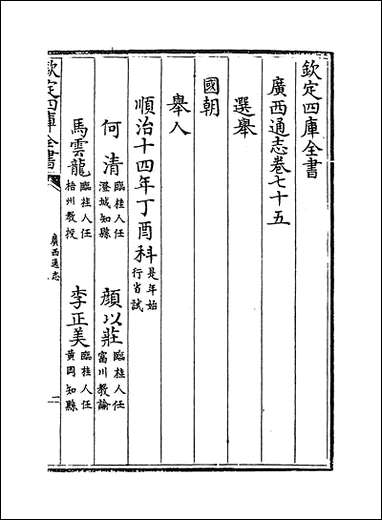 欽定四庫全書
廣西通志卷七十五
選舉
國朝
舉人
順治十四年丁酉科是年始行省試
何清臨桂人任澄城知縣 顔以莊臨桂人任富川教諭
馬雲龍臨桂人任梧州教授 李正美臨桂人任黄岡知縣
欽定四庫全書 廣西通志 一